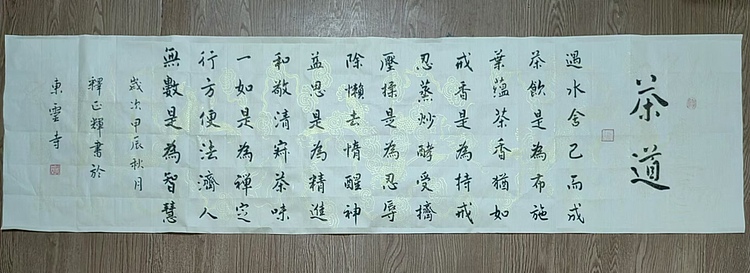 茶道
遇水舍己而成
茶飲是為布施
葉蘊茶香猶如
戒香是為持戒
忍蒸炒酵受擠
壓揉是為忍辱
除懶去惰醒神
益思是為精進
和敬清寂茶味
一如是為禪定
行方便法濟人
無數是為智慧
歲次甲辰秋月
釋正輝書於
東雲寺